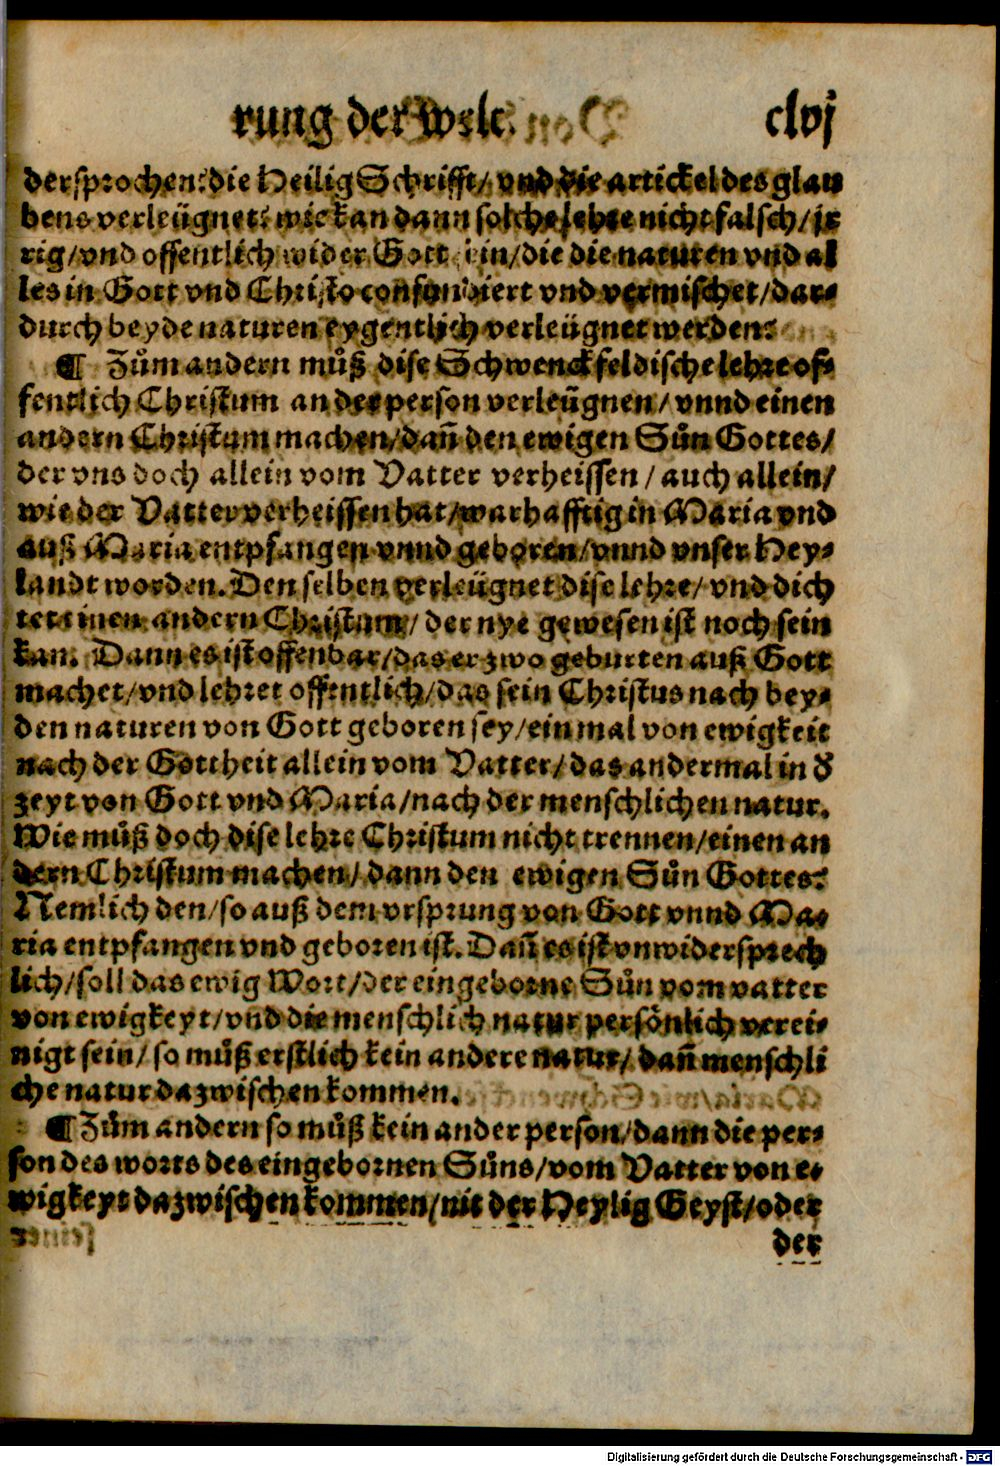 rung der welt. clvj
dersprochen: die Heilig Schrifft/ vnd die artickel des glau
bens verleügnet: wie kan dann solche lehre nicht falsch/ jr
rig/ vnd offentlich wider Gott sein/ die die naturen vnd al
les in Gott vnd Christo confundiert vnd vermischet/ dar⸗
durch beyde naturen eygentlich verleügnet werden:
¶ Zům andern můß dise Schwenckfeldische lehre of⸗
fentlich Christum an der person verleügnen/ vnnd einen
andern Christum machen/ dañ den ewigen Sůn Gottes/
der vns doch allein vom Vatter verheissen/ auch allein/
wie der Vatter verheissen hat/ warhafftig in Maria vnd
auß Maria entpfangen vnnd geboren/ vnnd vnser Hey⸗
landt worden. Den selben verleügnet dise lehre/ vnd dich
tet einen andern Christum/ der nye gewesen ist noch sein
kan. Dann es ist offenbar/ das er zwo geburten auß Gott
machet/ vnd lehret offentlich/ das sein Christus nach bey⸗
den naturen von Gott geboren sey/ ein mal von ewigkeit
nach der Gottheit allein vom Vatter/ das andermal in d̕
zeyt von Gott vnd Maria/ nach der menschlichen natur.
Wie můß doch dise lehre Christum nicht trennen/ einen an
dern Christum machen/ dann den ewigen Sůn Gottes:
Nemlich den/ so auß dem vrsprung von Gott vnnd Ma⸗
ria entpfangen vnd geboren ist. Dañ es ist vnwidersprech
lich/ soll das ewig Wort/ der eingeborne Sůn vom vatter
von ewigkeyt/ vnd die menschlich natur persönlich verei⸗
nigt sein/ so můß erstlich kein andere natur/ dañ menschli
che natur dazwischen kommen.
¶ Zům andern so můß kein ander person/ dann die per⸗
son des worts des eingebornen Sůns/ vom Vatter von e⸗
wigkeyt dazwischen kommen/ nit der Heylig Geyst/ oder
der
Digitalisierung gefördert durch die Deutsche Forschungsgemeinschaft - DFG